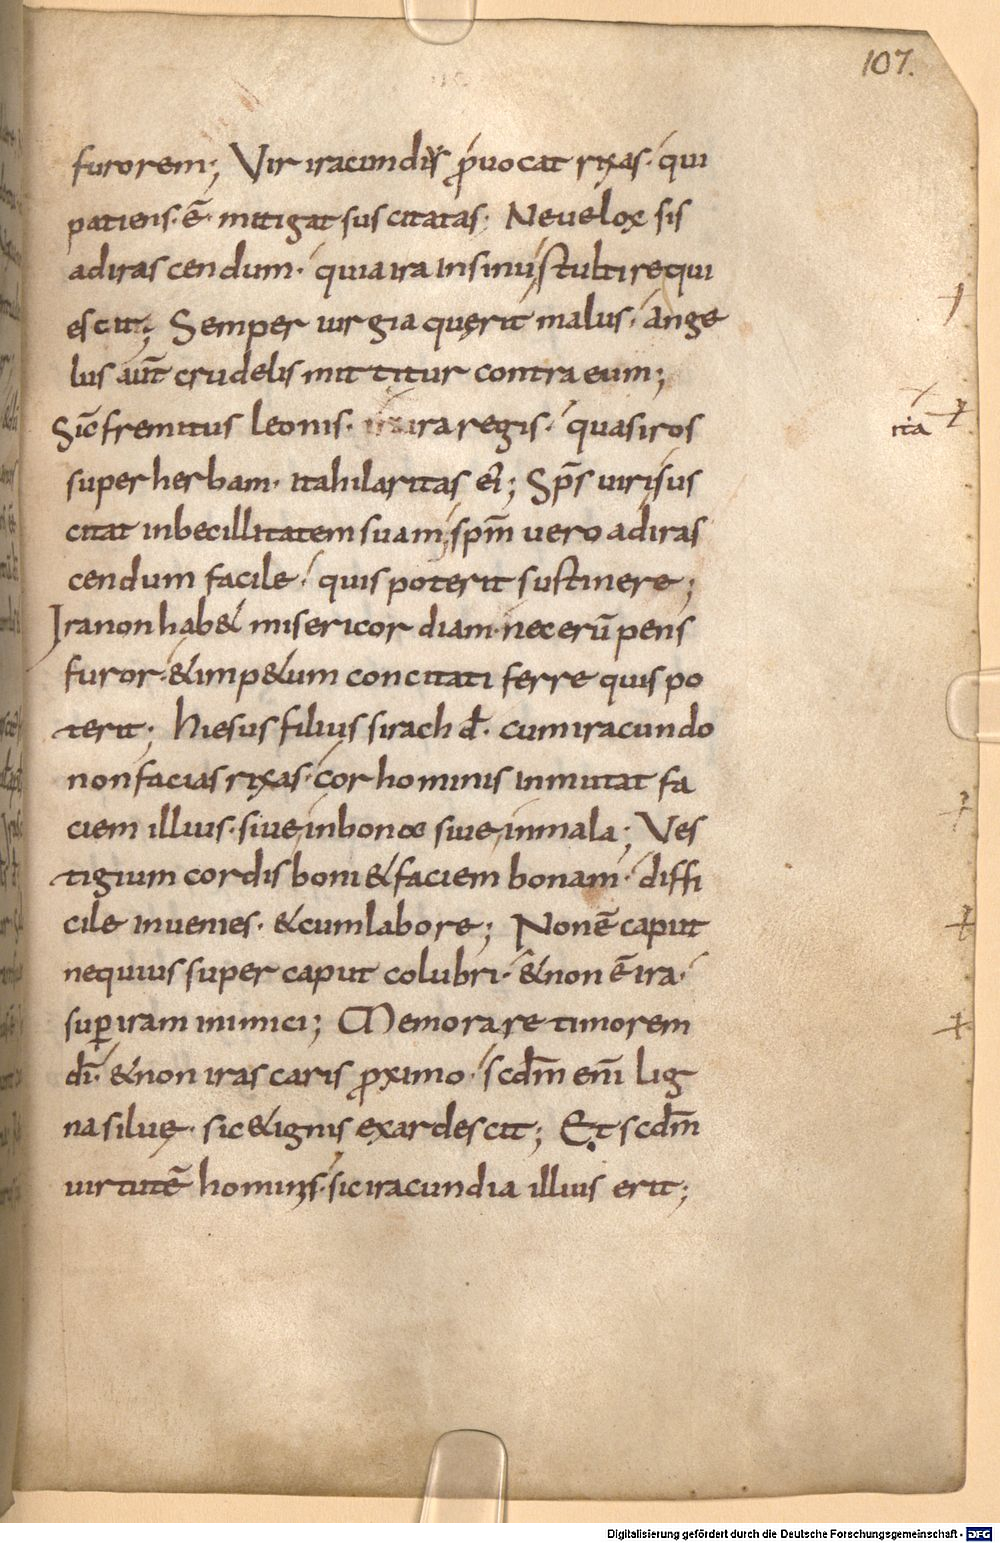 107.
furorem; Vir iracundus ꝓuocat rixas· qui
patiens· ē· mitigat suscitatas· Ne uelox sis
ad irascendum· quia ira in sinu stulti requi
escit; Semper iurgia quęrit malus· ange
lus aut̄ crudelis mittitur contra eum;
Sic̄ fremitus leonis· ira regis· quasi ros
ita
super herbam· ita hilaritas ei; Sp̄s uiri sus
citat inbecillitatem suam· sp̄m uero ad iras
cendum facile· quis poterit sustinere;
Ira non hab& misericordiam· nec erū pens
furor· & imp&um concitati ferre quis po
terit; hiesus filius sirach d̄· cum iracundo
non facias rixas· cor hominis inmutat fa
ciem illius· siue in bono siue in mala; Ves
tigium cordis boni & faciem bonam· diffi
cile inuenies· & cum labore; Non ē caput
nequius super caput colubri· & non ē ira·
suꝑ iram inimici; Memorare timorem
dī· & non irascaris ꝓximo· scdm̄ enī lig
na siluę· sic & ignis exardescit; Et scdm̄
uirtutē hominis· sic iracundia illius erit;
Digitalisierung gefördert durch die Deutsche Forschungsgemeinschaft - DFG